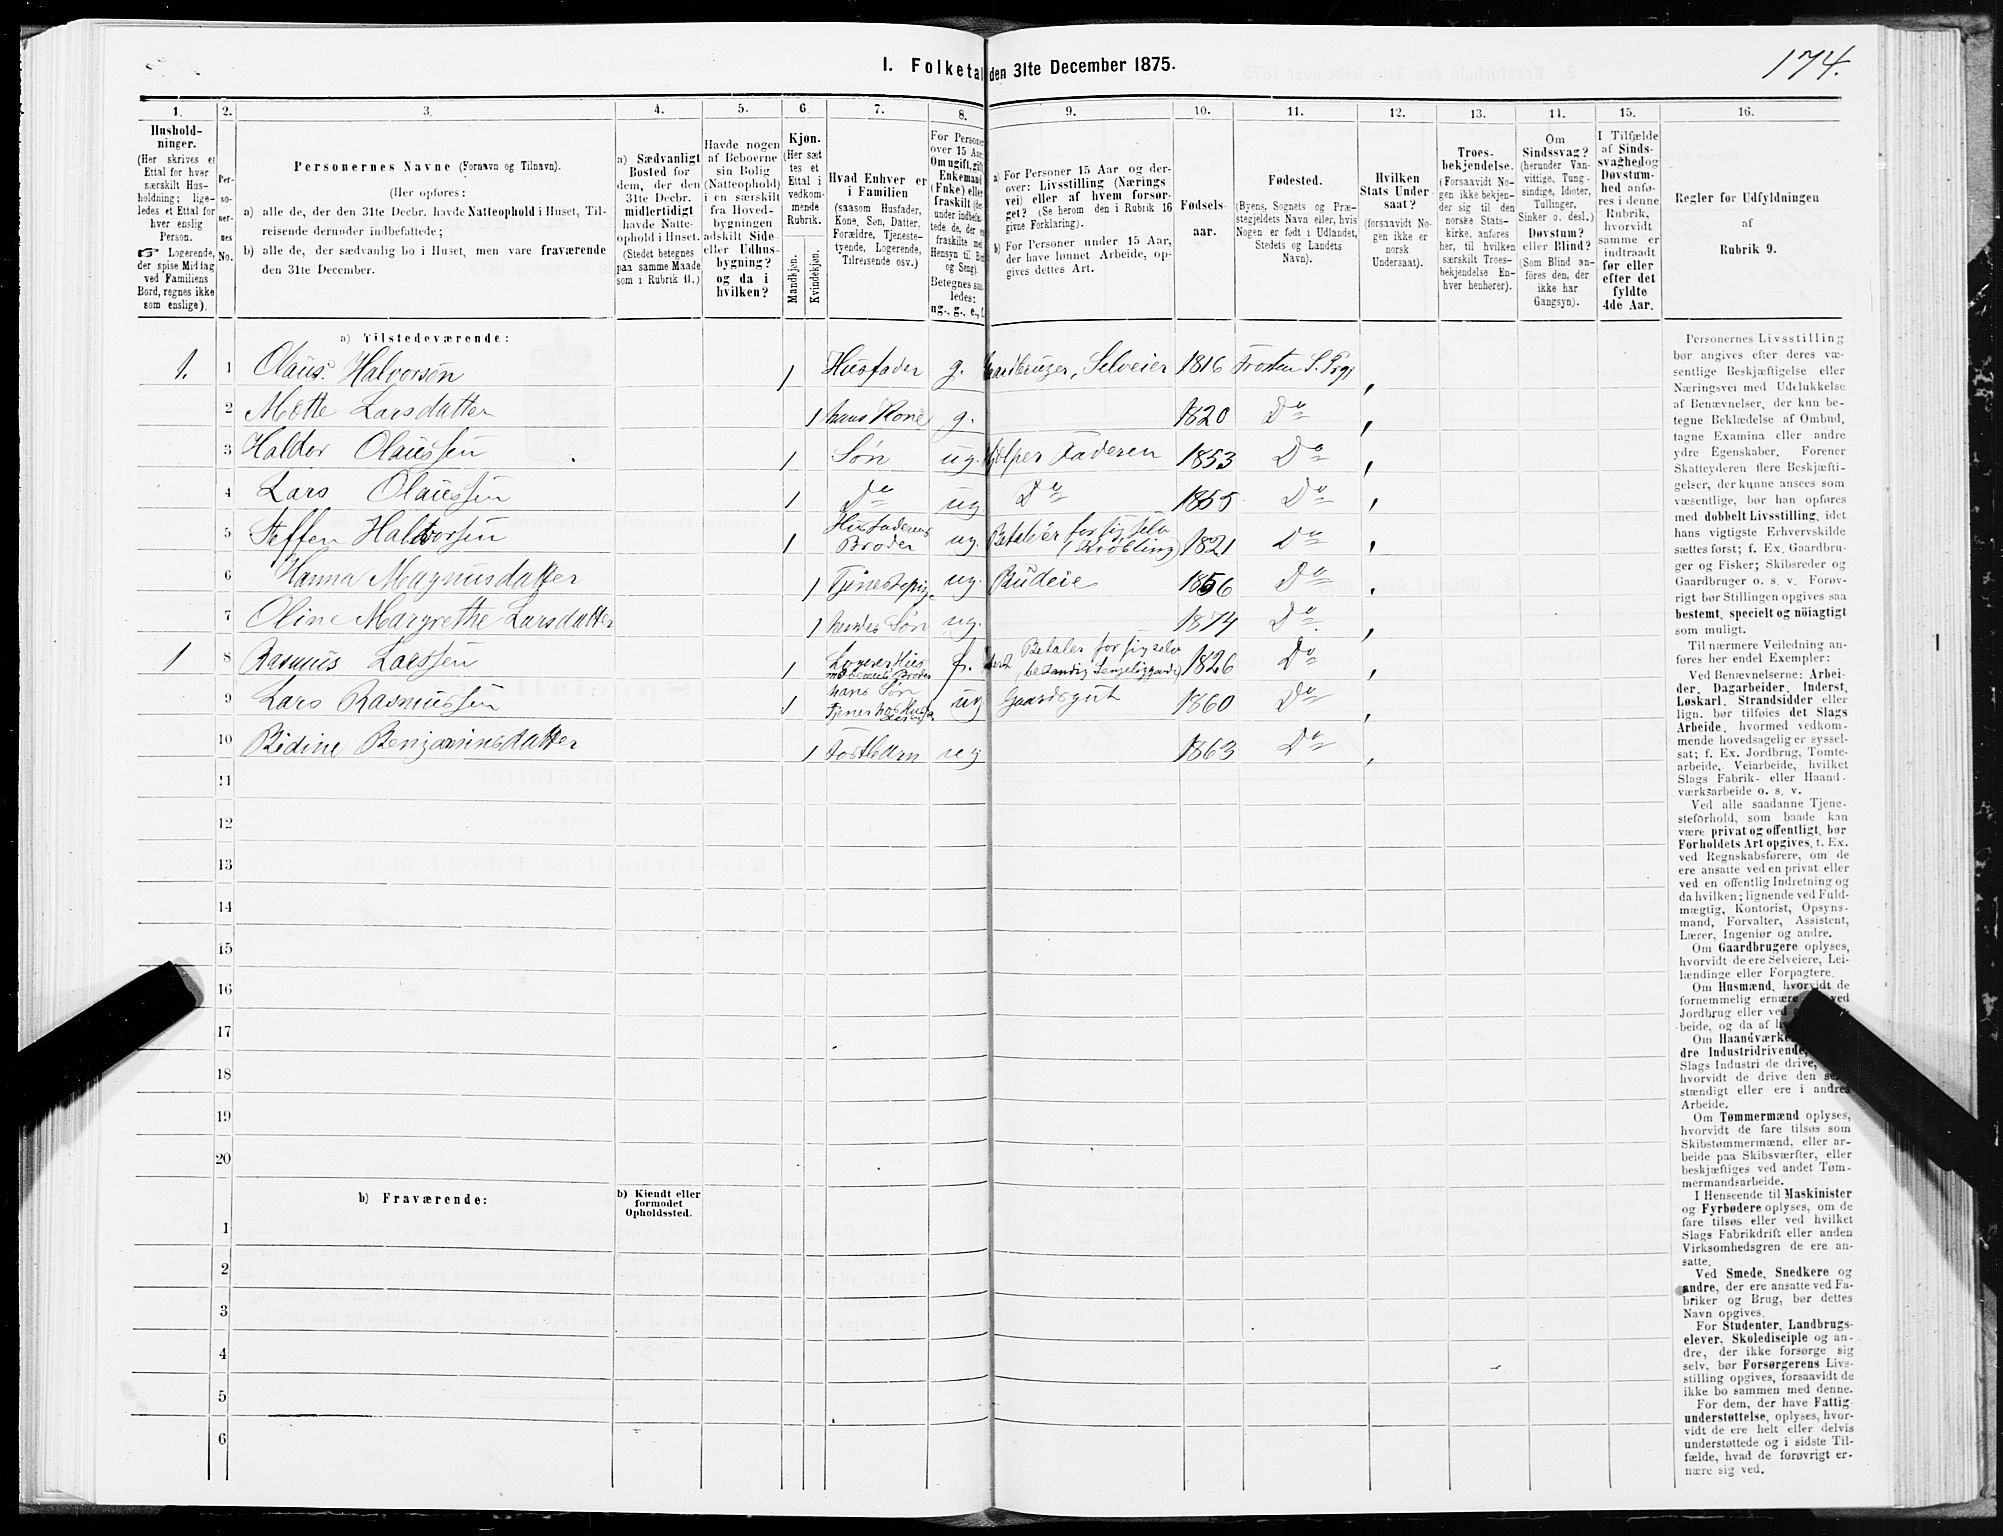 174.
I. Folketal den 31te December 1875.
1. 2. 3. 4. 5. 6. 7. 8. 9. 10. 11. 12. 13. 14. 15. 16.
Hushold-
ninger.
(Her skrives et
Ettal for hver
særskilt Hus-
holdning; lige-
ledes et Ettal for
hver enslig
Person.
☞ Logerende,
der spise Middag
ved Familiens
Bord, regnes ikke
som enslige).
Per-
so-
ner-
nes
No.
Personernes Navne (Fornavn og Tilnavn).
(Her opføres:
a) alle de, der den 31te Decbr. havde Natteophold i Huset, Til-
reisende derunder indbefattede;
b) alle de, der sædvanlig bo i Huset, men vare fraværende
den 31te December.
a) Sædvanligt
Bosted for
dem, der den
31te Decbr.
midlertidigt
havde Natte-
ophold i Huset.
(Stedet betegnes
paa samme Maade
som i Rubrik 11.)
Havde nogen
af Beboerne
sin Bolig
(Natteophold)
i en særskilt
fra Hoved-
bygningen
adskilt Side-
eller Udhus-
bygning?
og da i
hvilken?
Kjøn.
(Her sæt
tes et
Ettal i
vedkom-
mende
Rubrik.
Mandkjøn.
Kvindekjøn.
Hvad Enhver er
i Familien
(saasom Husfader,
Kone, Søn, Datter,
Forældre, Tjeneste-
tyende, Logerende,
Tilreisende osv.)
For Personer
over 15 Aar
Om ugift, gift
Enkemand
(Enke) eller
fraskilt
Betegnes saa-
ledes:
ug., g., e.,
a) For Personer 15 Aar og der-
over: Livsstilling (Nærings
vei) eller af hvem forsør-
get? (Se herom den i Rubrik 16
givne Forklaring).
b) For Personer under 15 Aar,
der have lønnet Arbeide, op-
gives dettes Art.
Fødsels-
aar.
Fødested.
(Byens, Sognets og Præ-
stegjeldets Navn eller, hvis
Nogen er født i Udlandet,
Stedets og Landets
Navn).
Hvilken
Stats Under-
saat?
(forsaavidt No-
gen ikke er
norsk
Undersaat).
Troes-
bekjendelse.
(Forsaavidt No-
gen ikke bekjen-
der sig til den
norske Stats-
kirke, anføres
her, til hvilken
særskilt Troes-
bekjendelse En-
hver henhører).
Om
Sindssvag?
(herunder Van-
vittige, Tung-
sindige, Idioter,
Tullinger,
Sinker o. desl.)
Døvstum?
eller Blind?
(Som Blind an-
føres den, der
ikke har
Gangsyn).
I Tilfælde
af Sinds-
svaghed og
Døvstum-
hed anfø-
res i denne
Rubrik,
hvorvidt
samme er
indtraadt
før eller
efter det
fyldte
4de Aar.
Regler for Udfyldningen
af
Rubrik 9.
a) Tilstedeværende:
1. 1 Olaus Halvorsen 1 Husfader g. Gaardbruger, Selveier 1816 Frosten S. Prgj ,
2 Mette Larsdatter 1 hans Kone g. 1820 Do ,
3 Haldor Olaussen 1 Søn ug. Hjælper Faderen 1853 Do ,
4 Lars Olaussen 1 Do ug Do 1855 Do ,
5 Steffen Halvorsen 1 Husfaderens Broder ug. Betaler for sig selv (Krøbling) 1821 Do ,
6 Hanna Magnusdatter 1 Tjenestepige ug. Budeie 1856 Do ,
7 Oline Margrethe Larsdatter 1 hendes Søn ug. 1874 Do ,
1 8 Rasmus Larssen 1 Betaler for sig selv (bestandig Sengeliggende) 1826 Do ,
9 Lars Rasmussen 1 hans Søn Tjener hos ug Gaardsgut 1860 Do ,
10 Bidine Benjaminsdatter 1 Fostbarn ug 1863 Do ,
11
12
13
14
15
16
17
18
19
20
b) Fraværende:
b) Kjendt eller
formodet
Opholdssted.
1
2
3
4
5
6
Personernes Livsstilling
bør angives efter deres væ-
sentlige Beskjæftigelse eller
Næringsvei med Udelukkelse
af Benævnelser, der kun be-
tegne Beklædelse af Ombud,
tagne Examina eller andre
ydre Egenskaber. Forener
Skatteyderen flere Beskjæfti-
gelser, der kunne ansees som
væsentlige, bør han opføres
med dobbelt Livsstilling, idet
hans vigtigste Erhvervskilde
sættes først; f. Ex. Gaardbru-
ger og Fisker; Skibsreder og
Gaardbruger o. s. v. Forøv-
rigt bør Stillingen opgives saa
bestemt, specielt og nöiagtigt
som muligt.
Til nærmere Veiledning an-
føres her endel Exempler:
Ved Benævnelserne: Arbei-
der, Dagarbeider, Inderst,
Løskarl, Strandsidder eller
lign. bør tilføies det Slags
Arbeide, hvormed vedkom-
mende hovedsagelig er syssel-
sat; f. Ex. Jordbrug, Tomte-
arbeide, Veiarbeide, hvilket
Slags Fabrik- eller Haand-
værksarbeide o. s. v.
Ved alle saadanne Tjene-
steforhold, som baade kan
være privat og offentligt, bør
Forholdets Art opgives, f. Ex.
ved Regnskabsførere, om de
ere ansatte ved en privat eller
ved en offentlig Indretning og
da hvilken; lignende ved Fuld-
mægtig, Kontorist, Opsyns-
mand, Forvalter, Assistent,
Lærer, Ingeniør og andre.
Om Gaardbrugere oplyses,
hvorvidt de ere Selveiere, Lei-
lændinge eller Forpagtere.
Om Husmænd, hvorvidt de
fornemmelig ernære ved
Jordbrug eller ved
beide, og da af
Om Haandværke
dre Industridrivende,
Slags Industri de drive,
hvorvidt de drive den
stændigt eller ere i andres
Arbeide.
Om Tømmermænd oplyses,
hvorvidt de fare tilsøs som
Skibstømmermænd, eller ar-
beide paa Skibsværfter, eller
beskjæftiges ved andet Tøm-
mermandsarbeide.
I Henseende til Maskinister
og Fyrbødere oplyses, om de
fare tilsøs eller ved hvilket
Slags Fabrikdrift eller anden
Virksomhedsgren de ere an-
satte.
Ved Smede, Snedkere og
andre, der ere ansatte ved Fa-
briker og Brug, bør dettes
Navn opgives.
For Studenter, Landbrugs-
elever, Skoledisciple og an-
dre, der ikke forsørge sig
selv, bør Forsørgerens Livs-
stilling opgives, forsaavidt de
ikke bo sammen med denne.
For dem, der have Fattig-
understøttelse, oplyses, hvor-
vidt de ere helt eller delvis
understøttede og i sidste Til-
fælde, hvad de forøvrigt er-
nære sig ved.